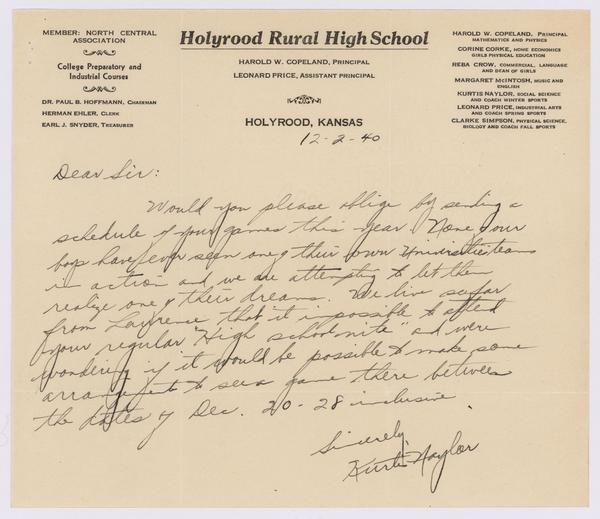 MEMBER: NORTH CENTRAL
ASSOCIATION
College Preparatory and
Industrial Courses
DR. PAUL B. HOFFMANN, CHAIRMAN
HERMAN EHLER, CLERK
EARL J. SNYDER, TREASURER
Holyrood Rural High School
HAROLD W. COPELAND, PRINCIPAL
LEONARD PRICE, ASSISTANT PRINCIPAL
HOLYROOD, KANSAS
HAROLD W. COPELAND, PRINCIPAL
MATHEMATICS AND PHYSICS
CORINE CORKE, HOME ECONOMICS
GIRLS PHYSICAL EDUCATION
REBA CROW, COMMERCIAL, LANGUAGE
AND DEAN OF GIRLS
MARGARET McINTOSH, MUSIC AND
ENGLISH
KURTIS NAYLOR, SOCIAL SCIENCE
AND COACH WINTER SPORTS
LEONARD PRICE, INDUSTRIAL ARTS
AND COACH SPRING SPORTS
CLARKE SIMPSON, PHYSICAL SCIENCE,
BIOLOGY AND COACH FALL SPORTS
12-2-40
Dear Sir:
Would you please oblige by sending a
schedule of your games this year. None of our
boys have ever seen one of their own teams
in action and we are attempting to let them
realize one of their dreams. We live so far
from Lawrence that it impossible to attend
your regular "High school nite" and were
wondering if it would be possible to make some
to see a game there between
the dates of Dec. 20-28 inclusive
Sincerely,
Kurtis Naylor